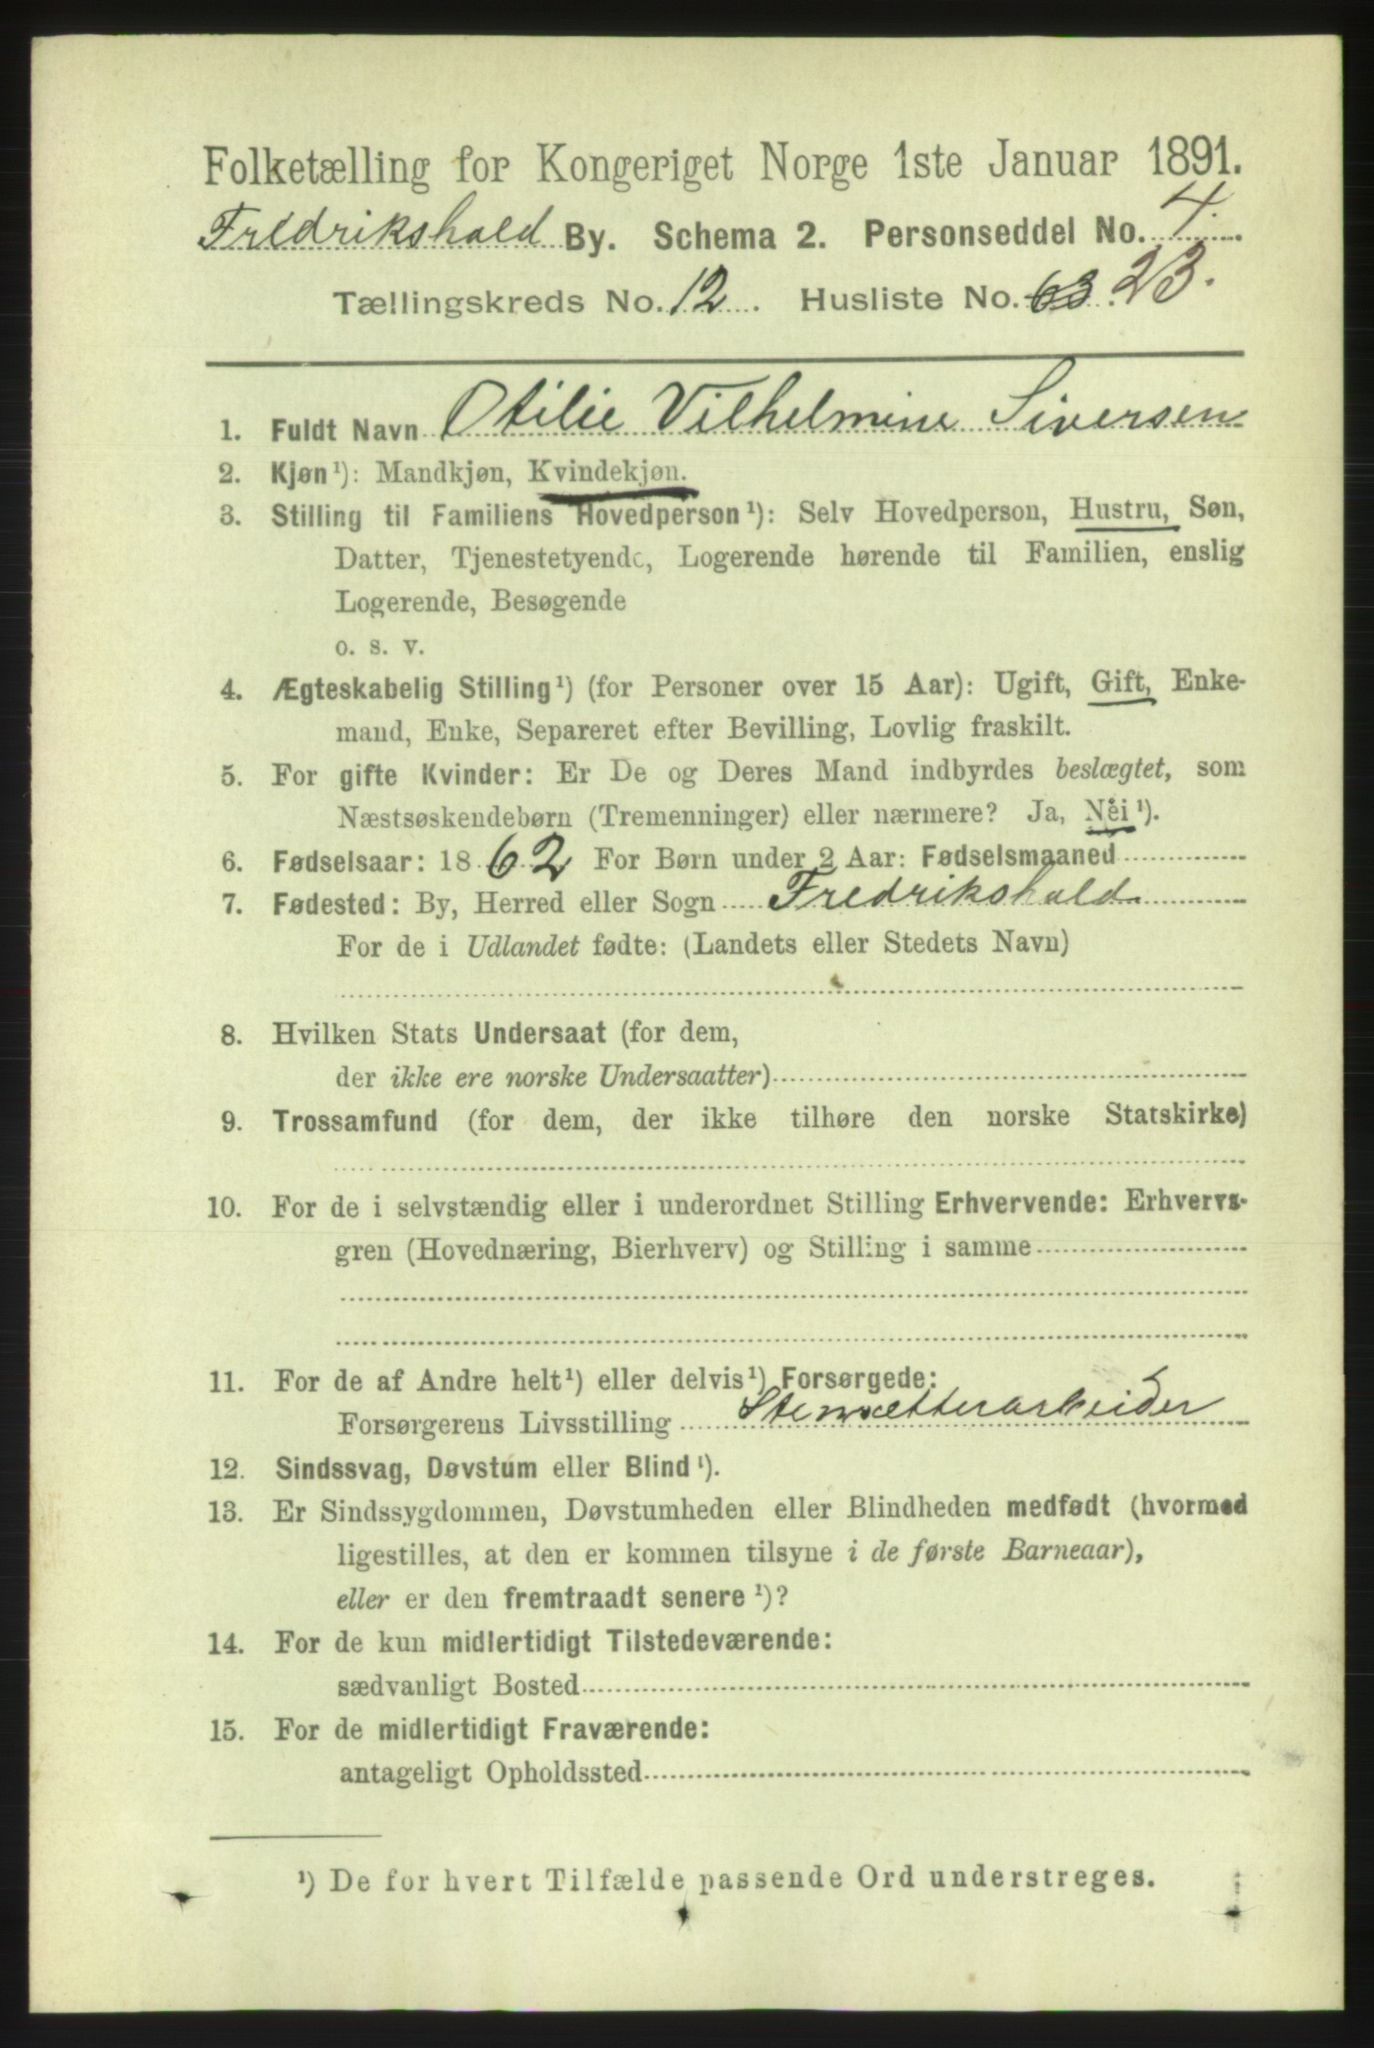 Folketælling for Kongeriget Norge 1ste Januar 1891.
Fredrikshald By. Schema 2. Personseddel No. 4.
Tællingskreds No. 12. Husliste No. 63 23.
1. Fuldt Navn Otilie Vilhelmine Siversen
2. Kjøn¹): Mandkjøn, Kvindekjøn.
3. Stilling til Familiens Hovedperson¹): Selv Hovedperson, Hustru, Søn,
Datter, Tjenestetyende, Logerende hørende til Familien, enslig
Logerende, Besøgende
o. s. v.
4. Ægteskabelig Stilling¹) (for Personer over 15 Aar): Ugift, Gift, Enke-
mand, Enke, Separeret efter Bevilling, Lovlig fraskilt.
5. For gifte Kvinder: Er De og Deres Mand indbyrdes beslægtet, som
Næstsøskendebørn (Tremenninger) eller nærmere? Ja, Nei¹).
6. Fødselsaar: 1862 For Børn under 2 Aar: Fødselsmaaned
7. Fødested: By, Herred eller Sogn Fredrikshald
For de i Udlandet fødte: (Landets eller Stedets Navn)
8. Hvilken Stats Undersaat (for dem,
der ikke ere norske Undersaatter)
9. Trossamfund (for dem, der ikke tilhøre den norske Statskirke)
10. For de i selvstændig eller i underordnet Stilling Erhvervende: Erhvervs-
gren (Hovednæring, Bierhverv) og Stilling i samme
11. For de af Andre helt¹) eller delvis¹) Forsørgede:
Forsørgerens Livsstilling
12. Sindssvag, Døvstum eller Blind¹).
13. Er Sindssygdommen, Døvstumheden eller Blindheden medfødt (hvormed
ligestilles, at den er kommen tilsyne i de første Barneaar),
eller er den fremtraadt senere¹)?
14. For de kun midlertidigt Tilstedeværende:
sædvanligt Bosted
15. For de midlertidigt Fraværende:
antageligt Opholdssted
¹) De for hvert Tilfælde passende Ord understreges.